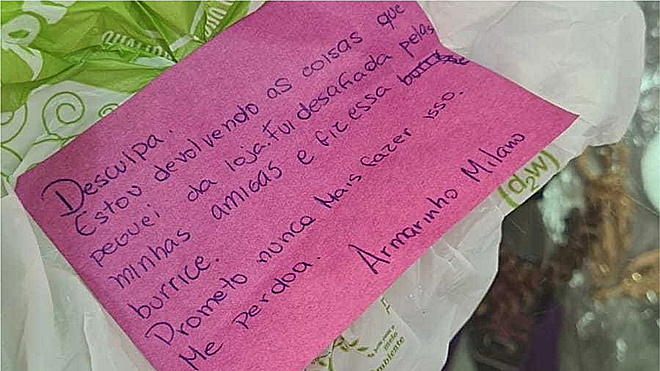 Desculpa.
Estou devolvendo as coisas que
peguei da loja. Fui desafiada pelas
minhas amigas e fiz essa
burrice.
Prometo nunca mais fazer isso.
Me perdoa. Armarinho Milano
(d2w)
meio
ambiente